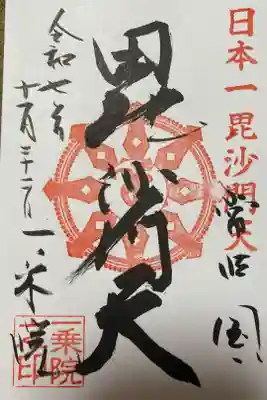 日本一毘沙門天
常陸国
毘沙門天
令和七年
十一月二十二日
一乗院
一乗院